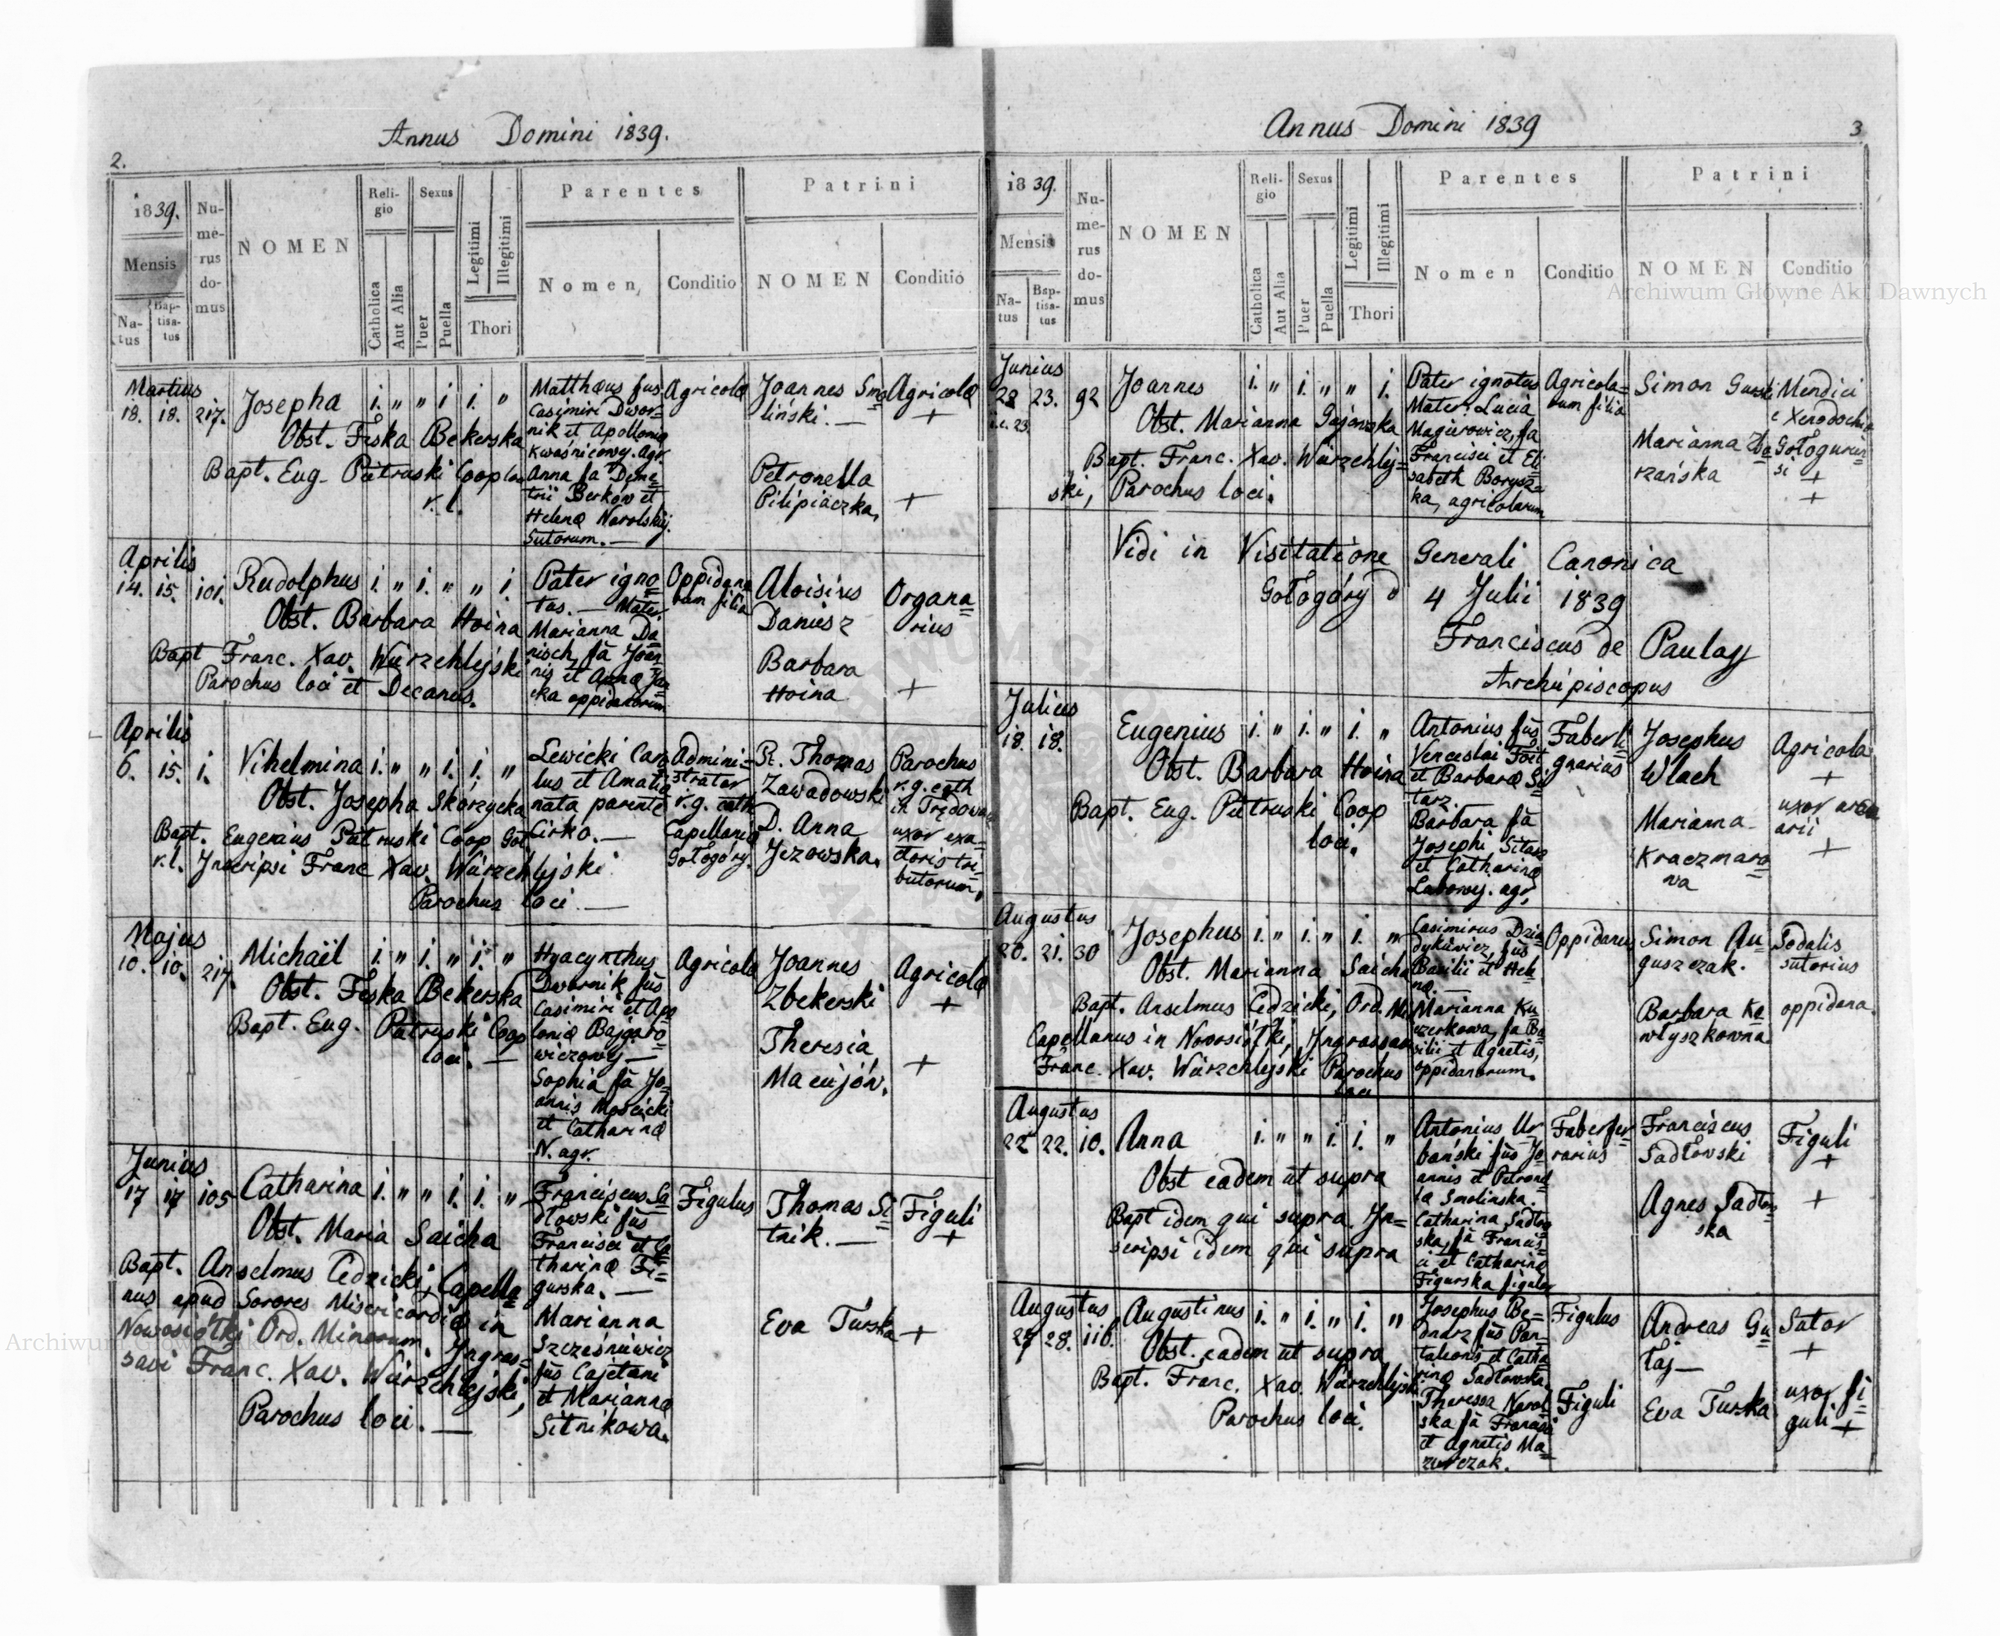 Annus Domini 1839.
2.
1839.
Mensis
Na-
tus
Bap-
tisa-
tus
Nu-
me-
rus
do-
mus
NOMEN
Reli-
gio
Catholica
Aut Alia
Sexus
Puer
Puella
Legitimi
Illegitimi
Thori
Parentes
Nomen
Conditio
Patrini
NOMEN
Conditio
Martius
18. 18. 217. Josepha i. " " i i. "
Obst. Feska Bekerska
Bapt. Eug. Pietruski Coop loci
r. l.
Matthæus fus
Casimiri Dwor-
nik et Apollonia
Kwaśnicowy. Agr.
Anna fa Deme-
trii Berkow et
Helenæ Narolskiij.
Sutorum. —
Agricolæ
Joannes Smo
liński. —
Petronella
Pilipiaczka,
Agricolæ
+
+
Aprilis
14. 15. 101. Rudolphus i. " i. " " i.
Obst. Barbara Hoina
Bapt Franc. Xav. Würzchlejski
Parochus loci et Decanus.
Pater igno
tus. — Mater
Marianna Da
nisch, fa Joan
nis et Annæ
cka oppidanorum
Oppidano
rum filia
Aloisius
Daniusz
Barbara
Hoina
Organa
rius
+
Aprilis
6. 15. 1. Vihelmina i. " " i. i. "
Obst. Josepha Skórzycka
Bapt. Eugenius Pietruski Coop Goł
r. l. Inscripsi Franc Xav. Würzchlejski
Parochus loci —
Lewicki Caro
lus et Amalia
nata parente
Cirko. —
Admini-
strator
r. g. cath
Capellaniæ
Gołogóry.
R. Thomas
Zawadowski
D. Anna
Jezowska.
Parochus
r. g. cath
in
uxor exa-
ctoris tri-
butorum.
Majus
10. 10. 217. Michaël i. " i. " i. "
Obst. Feska Bekerska
Bapt. Eug. Pietruski Coop
loci. —
Hyacynthus
Dwornik fus
Casimiri et Apo
loniæ Bajgaro
wiczowy —
Sophia fa Jo-
annis Mościcki
et Catharinæ
N. agr.
Agricolæ
Joannes
Zbekerski
Theresia
Maciijów.
Agricolæ
+
+
Junius
17 17 105 Catharina i. " " i. i. "
Obst. Maria Saicha
Bapt. Anselmus Cedzicki, Capella
nus apud Sorores Misericordiæ in
Nowosiółki Ord. Minorum. Ingros-
savi Franc. Xav. Würzchlejski,
Parochus loci. —
Franciscus Sa
dłowski fus
Francisci et Ca
tharinæ Fi-
gurska. —
Marianna
Szcześniewicz
fus Cajetani
et Mariannæ
Sitnikowa.
Figulus
Thomas Si
tnik. —
Eva Turska
Figuli
+
+
Annus Domini 1839
3
1839.
Mensis
Na-
tus
Bap-
tisa-
tus
Nu-
me-
rus
do-
mus
NOMEN
Reli-
gio
Catholica
Aut Alia
Sexus
Puer
Puella
Legitimi
Illegitimi
Thori
Parentes
Nomen
Conditio
Patrini
NOMEN
Conditio
Junius
22 23. 92 Joannes i. " i. " " i.
i.e. 23.
Obst. Marianna Gajewska
Bapt. Franc. Xav. Würzchlej-
ski, Parochus loci.
Pater ignotus
Mater: Lucia
Magierowicz, fa
Francisci et Eli
sabeth Borysz-
ka, agricolarum
Agricola-
rum filia
Simon Gurski
Marianna Zbo
rzańska
Mendici
e Xenodochio
Gołogurien-
si +
+
Vidi in Visitatione Generali Canonica
Gołogóry d 4 Julii 1839
Franciscus de Paula
Archiepiscopus
Julius
18. 18. Eugenius i. " i. " i. "
Obst. Barbara Hoina
Bapt. Eug. Pietruski Coop
loci.
Antonius fus
Venceslai
et Barbaræ Si
tarz.
Barbara fa
Josephi Sitarz
et Catharinæ
agr.
Faber li-
gnarius
Josephus
Wlach
Marianna
Kraczmaro
wa
Agricola
+
uxor
arii
+
Augustus
20. 21. 30 Josephus i. " i. " i. "
Obst. Marianna Saicha
Bapt. Anselmus Cedzicki, Ord. Mi
Capellanus in Nowosiółki, Ingrossavi
Franc. Xav. Würzchlejski Parochus
loci
Casimirus Dzia
dykiewicz, fus
Basilii et Hele
næ. —
Marianna Ku
czerkowa, fa Ba
silii et Agnetis,
oppidanorum.
Oppidanus
Simon Au
guszczak.
Barbara Ka
włyszkowna.
Sodalis
sutorius
oppidana.
Augustus
22 22. 10. Anna i. " " i. i. "
Obst eadem ut supra
Bapt idem qui supra. In-
scripsi idem qui supra
Antonius Ur
bański fus Jo
annis et Petronel
la Smolinska.
Catharina Sadłow
ska, fa Francis-
ci et Catharinæ
Figurska figulor
Faber fer
rarius
Franciscus
Sadłowski
Agnes Sadłow
ska
Figuli
+
+
Augustus
27 28. 116. Augustinus i. " i. " i. "
Obst. eadem ut supra
Bapt. Franc. Xav. Würzchlejski
Parochus loci.
Josephus Be-
dnarz fus Pan-
taleonis et Catha
rinæ Sadłowska.
Theressa Narol
ska fa Francisci
et Agnetis Ma-
zurczak.
Figulus
Figuli
Andreas Gu
łaj —
Eva Turska
Sutor
+
uxor fi-
guli +
Archiwum Główne Akt Dawnych
Archiwum Główne Akt Dawnych